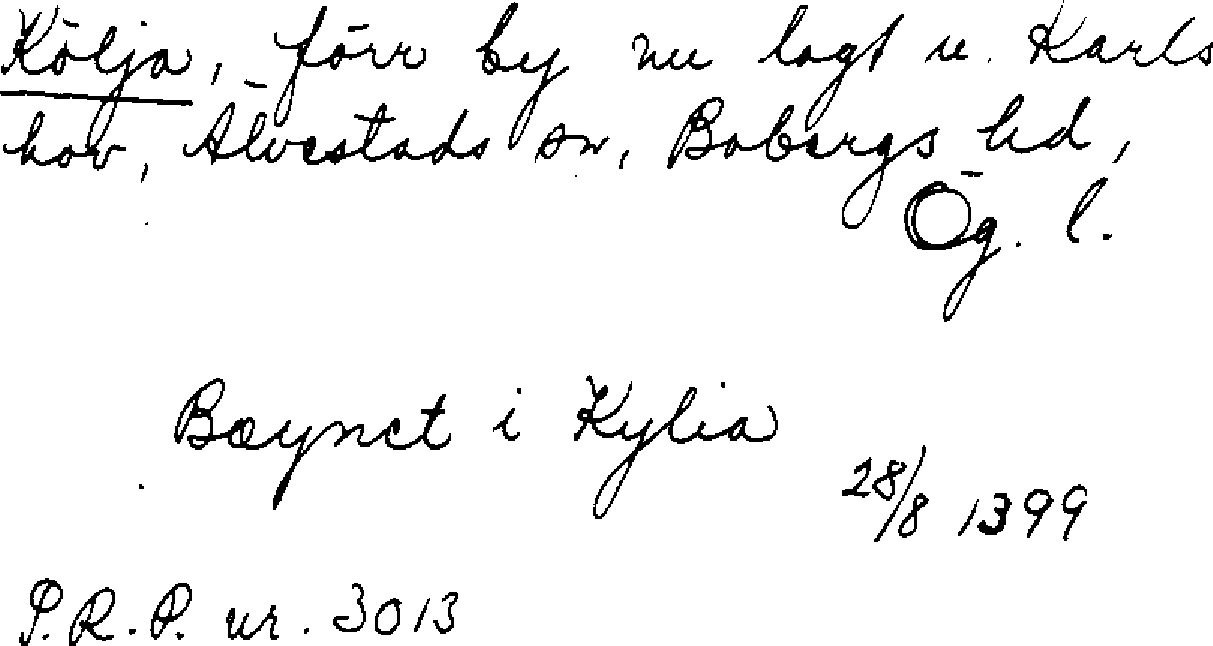 Kölja, förr by nu lagt u. Karls
hov, Älvestads sn, Bobergs hd,
Ög. l.
Bæynct i Kylia
28/8 1399
P.R.P. nr. 3013